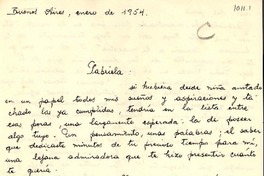 Buenos Aires, enero de 1954.
1011.1
C
Gabriela:
si hubiera desde niña anotado
en un papel todos mis sueños y aspiraciones y ta-
chado los ya cumplidos, tendría en la lista entre
esas pocas una largamente esperada: la de poseer
algo tuyo. Un pensamiento, unas palabras; el saber
que dedicaste minutos de tu precioso tiempo para mí,
una lejana admiradora que te hizo presentir cuanto
te quería.